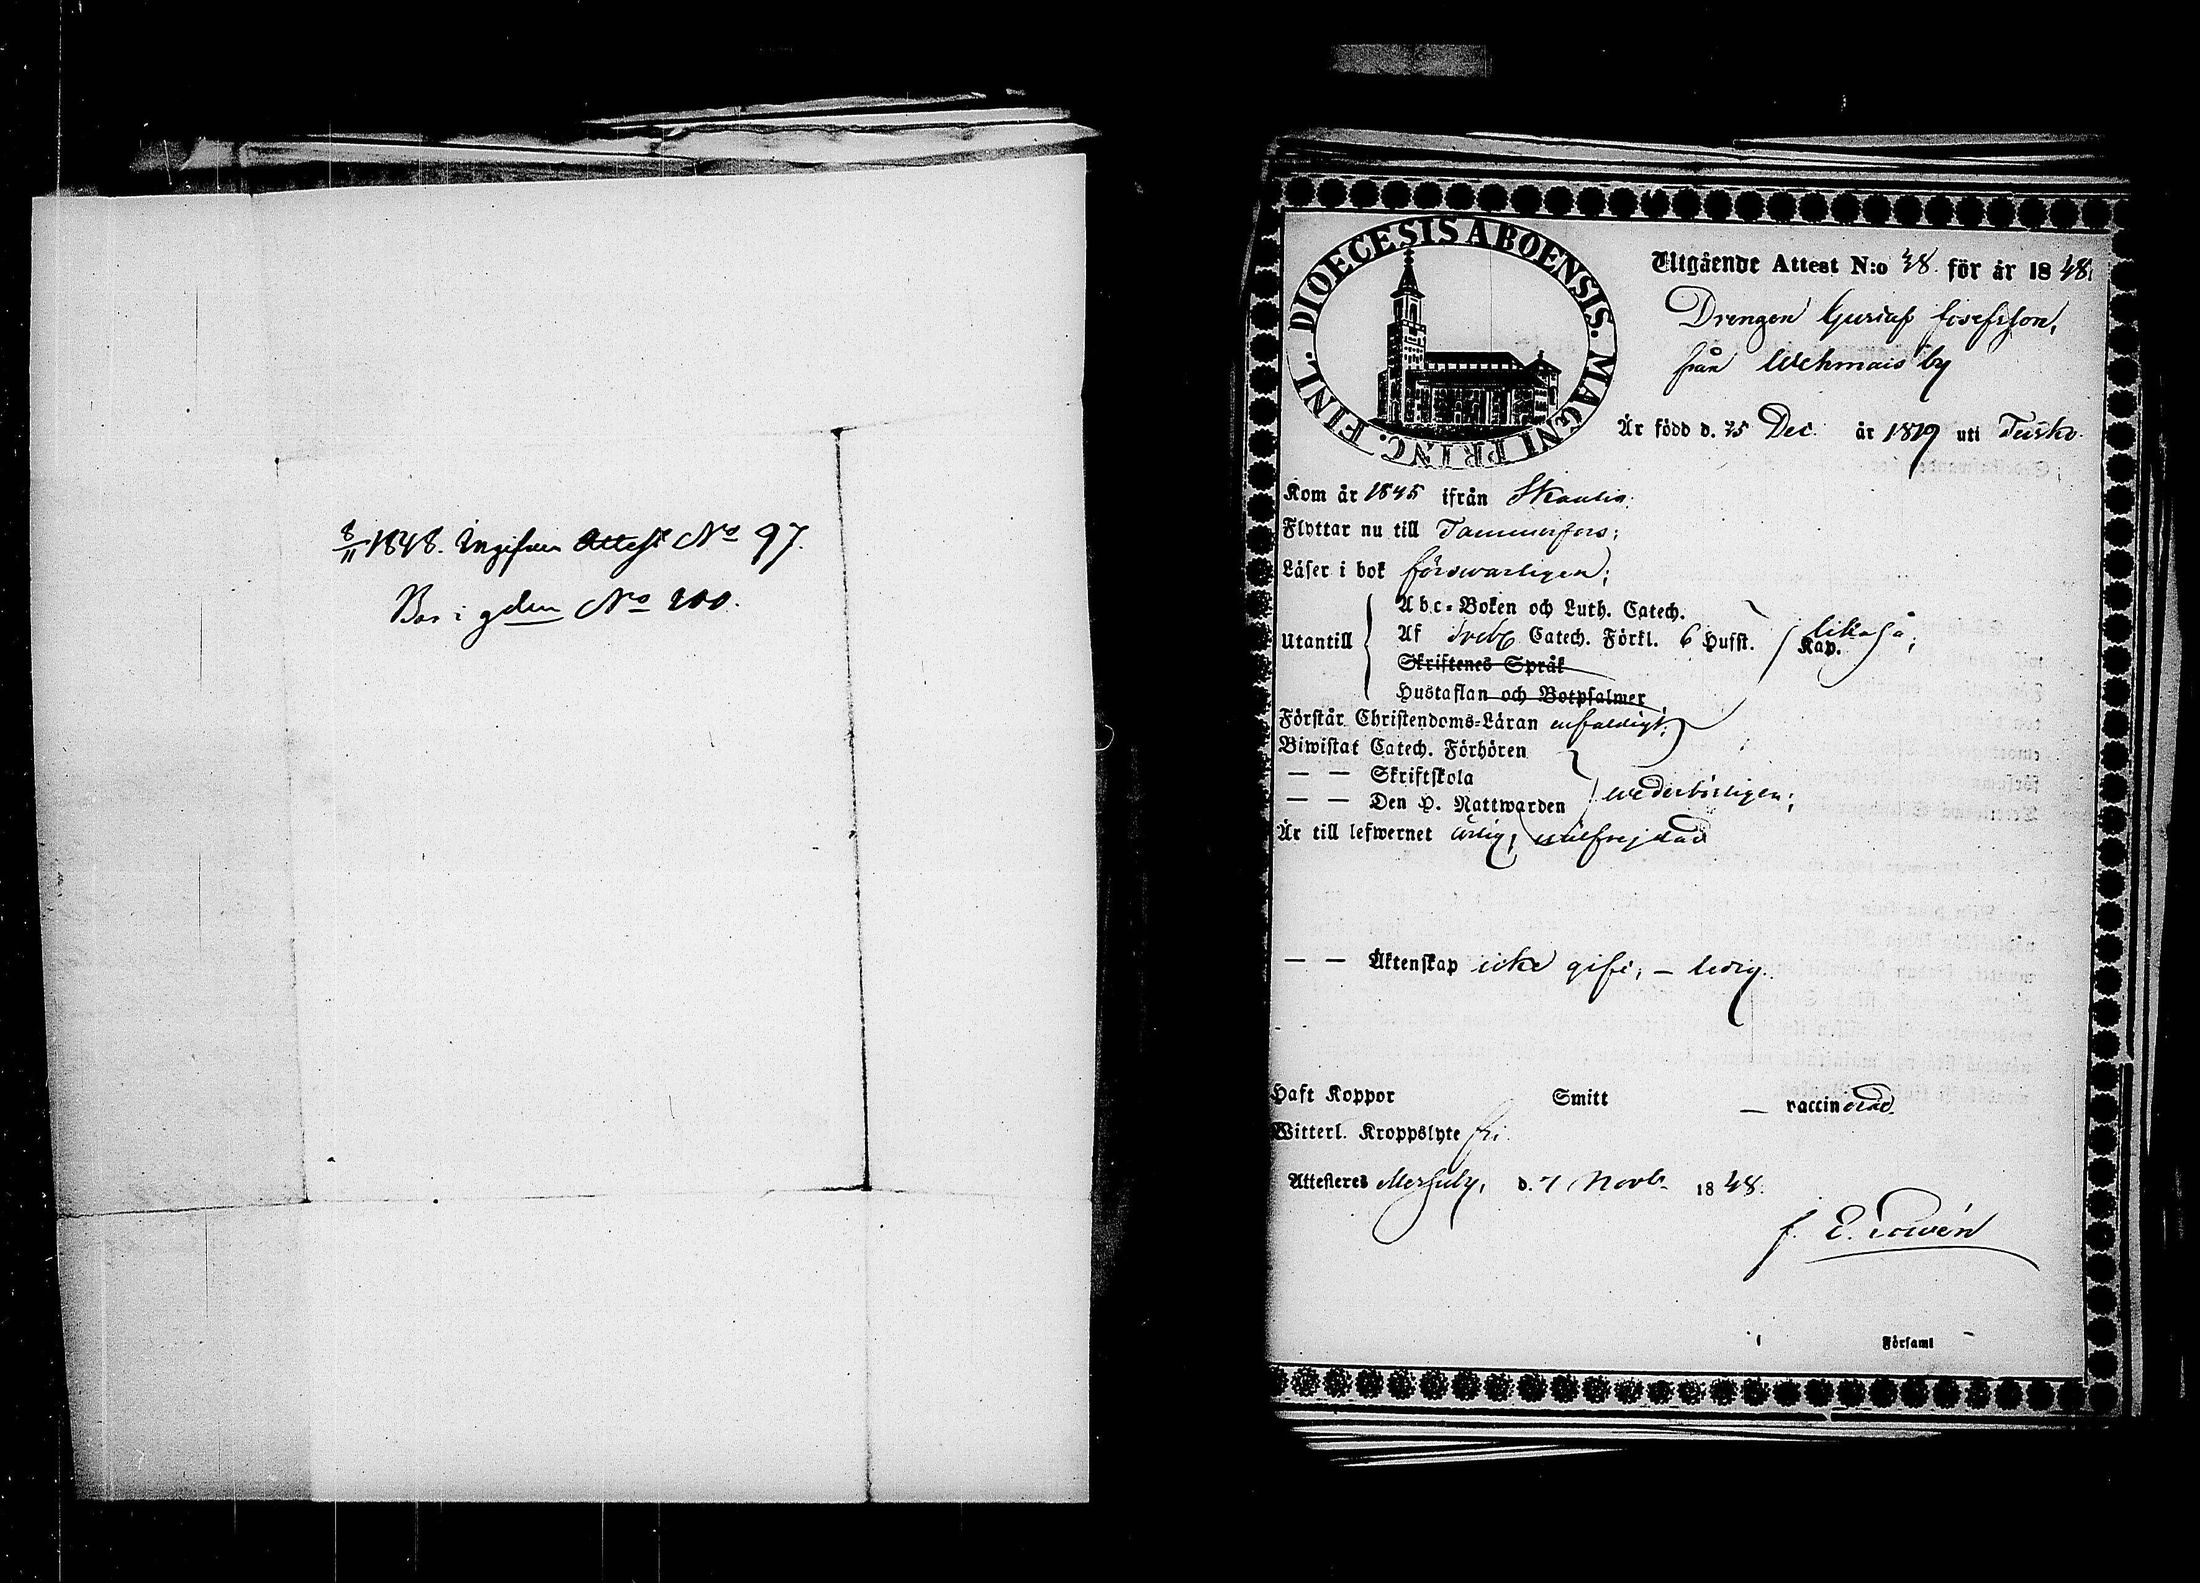 8/11 1848. Ingifven Attest No 97.
Bor i gden No 200.
DIOECESIS ABOENSIS. MAGNI PRINC. FINL.
Utgående Attest N:o 48. för år 1848.
Drengen Gustaf Josefsson,
från Wehmais by
Är född d. 25 Dec. år 1819 uti
Kom år 1845 ifrån
Flyttar nu till Tammerfors;
Läser i bok förswarligen;
Abc-Boken och Luth. Catech.
Utantill Af Sveb. Catech. Förkl. 6 Hufst. Kap. likaså;
Skriftenes Språk
Hustaflan och Botpsalmer
Förstår Christendoms-Läran enfaldigt;
Biwistat Catech. Förhören
— — Skriftskola
— — Den H. Nattwarden wederbörligen;
Är till lefwernet ärlig, wälfrejdad
— — Äktenskap icke gift, – ledig.
Haft Koppor Smitt — vaccinerad.
Witterl. Kroppslyte fri.
Attesteres d. 7 Novb. 1848.
Församl